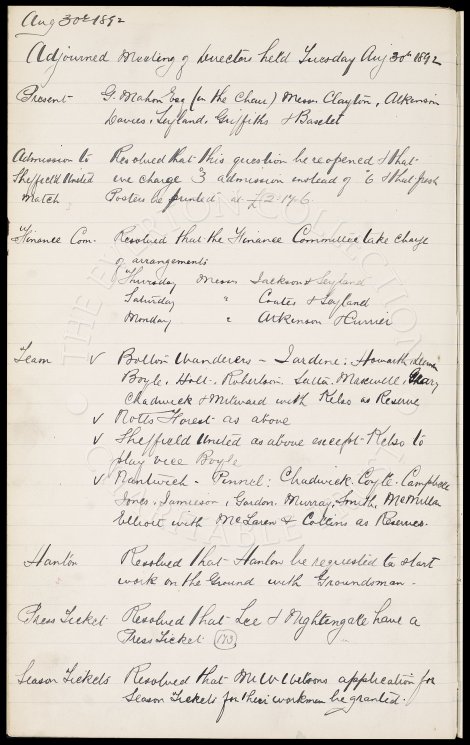 Aug 30th 1892
Adjourned Meeting of Directors held Tuesday Aug 30th 1892
Present G. Mahon Esq (in the Chair) Messrs Clayton, Atkinson
Davies, Leyland, Griffiths & Baxter
Admission to Resolved that this question be reopened & that
Sheffield United we charge 3 admission instead of 6 & that fresh
Match Posters be printed at £2.17.6
Finance Com. Resolved that the Finance Committee take charge
of arrangements
Thursday Messrs Jackson & Leyland
Saturday " Coates & Leyland
Monday " Atkinson & Currier
Team v Bolton Wanderers – Jardine, Howarth,
Boyle, Holt, Robertson, Latta, Maxwell, Geary
Chadwick & Milward with Kelso as Reserve
v Notts Forest as above
v Sheffield United as above except Kelso to
play vice Boyle
v Nantwich – Pinnell; Chadwick, Coyle, Campbell
Jones, Jamieson, Gordon, Murray, Smith, McMillan
Elliott with McLaren & Collins as Reserves.
Hanlon Resolved that Hanlon be requested to start
work on the Ground with Groundsman.
Press Ticket Resolved that Lee & Nightengale have a
Press Ticket (173)
Season Tickets Resolved that application for
Season Tickets for their workmen be granted.
THE EVERTON COLLECTION
CHARITABLE